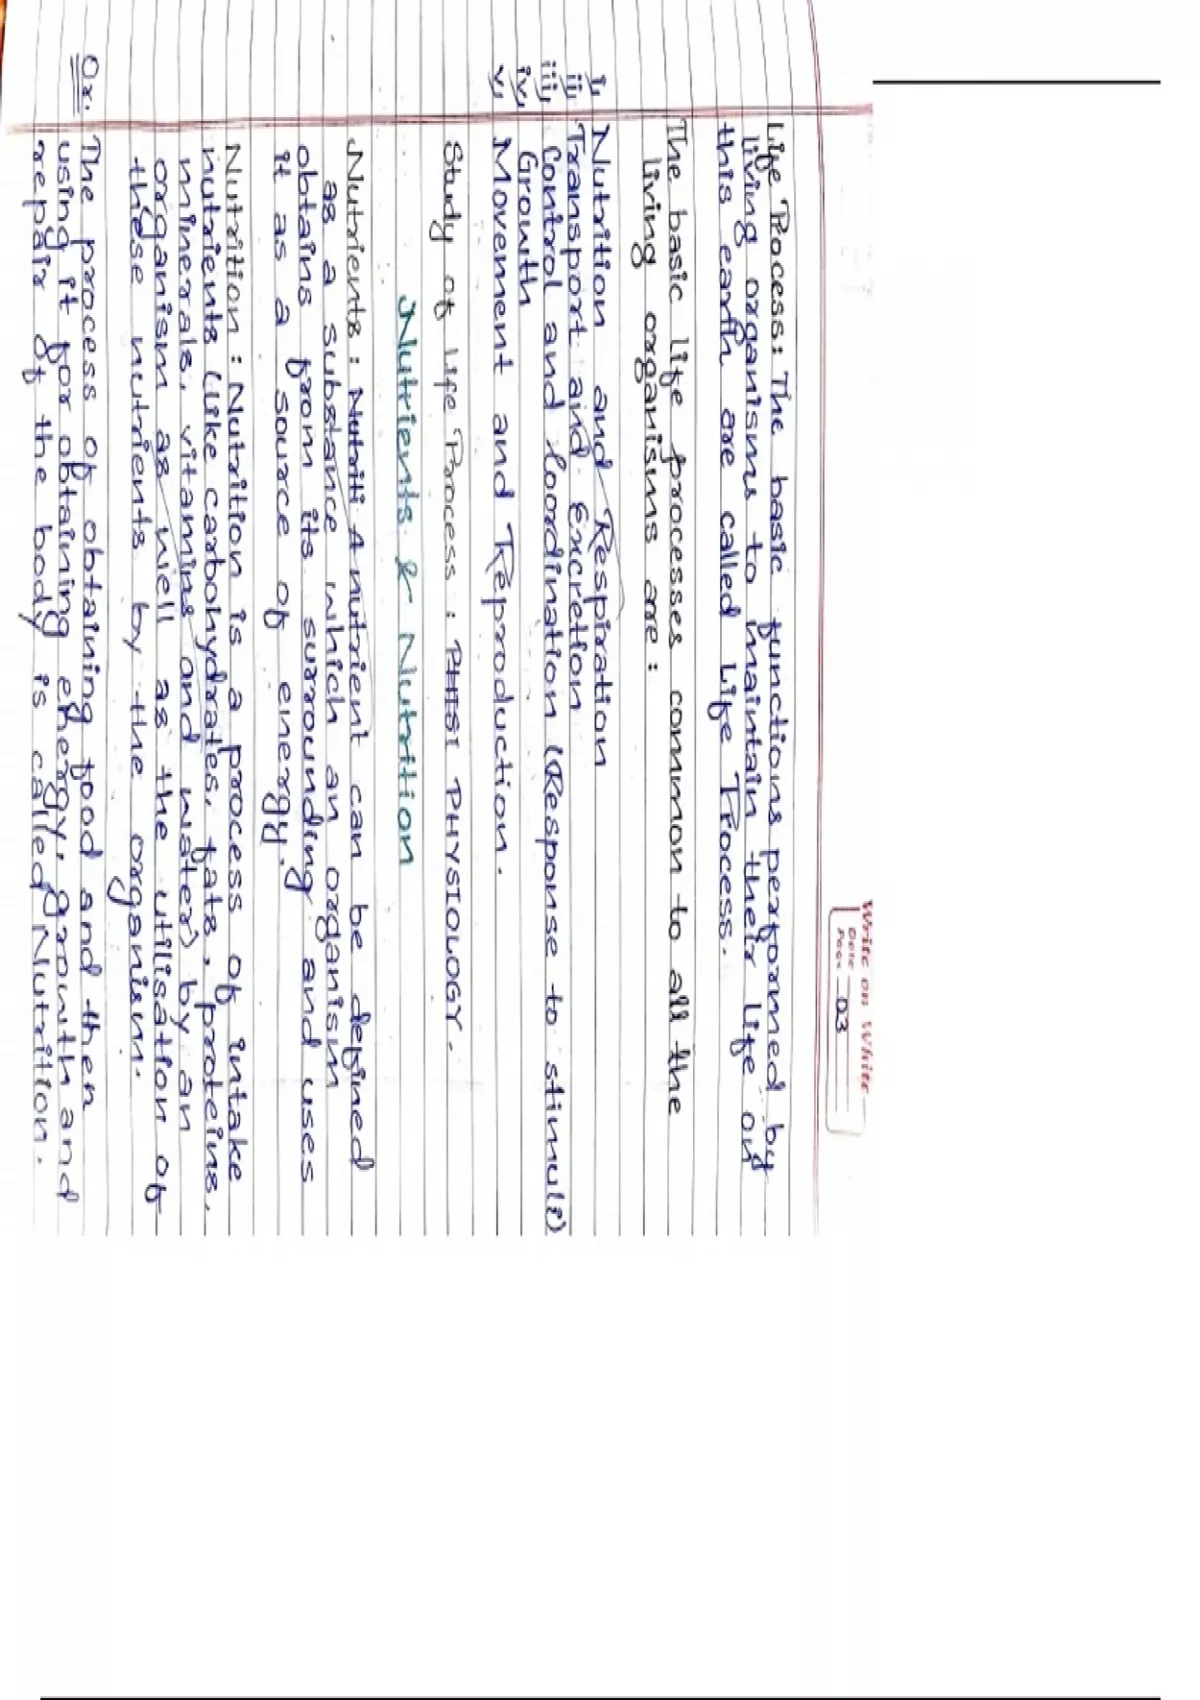 Write on White
Date
Page 03
Life Process: The basic functions performed by
living organisms to maintain their life on
this earth are called Life Process.
The basic life processes common to all the
living organisms are:
i, Nutrition and Respiration
ii, Transport and Excretion
iii, Control and Coordination (Response to stimuli)
iv, Growth
v, Movement and Reproduction.
Study of Life Process: PHISI PHYSIOLOGY.
Nutrients & Nutrition
Nutrients: Nutriti A nutrient can be defined
as a substance which an organism
obtains from its surrounding and uses
it as a source of energy.
Nutrition: Nutrition is a process of intake
nutrients (like carbohydrates, fats, proteins,
minerals, vitamins and water) by an
organism as well as the utilisation of
these nutrients by the organism.
Or. The process of obtaining food and then
using it for obtaining energy, growth and
repair of the body is called Nutrition.